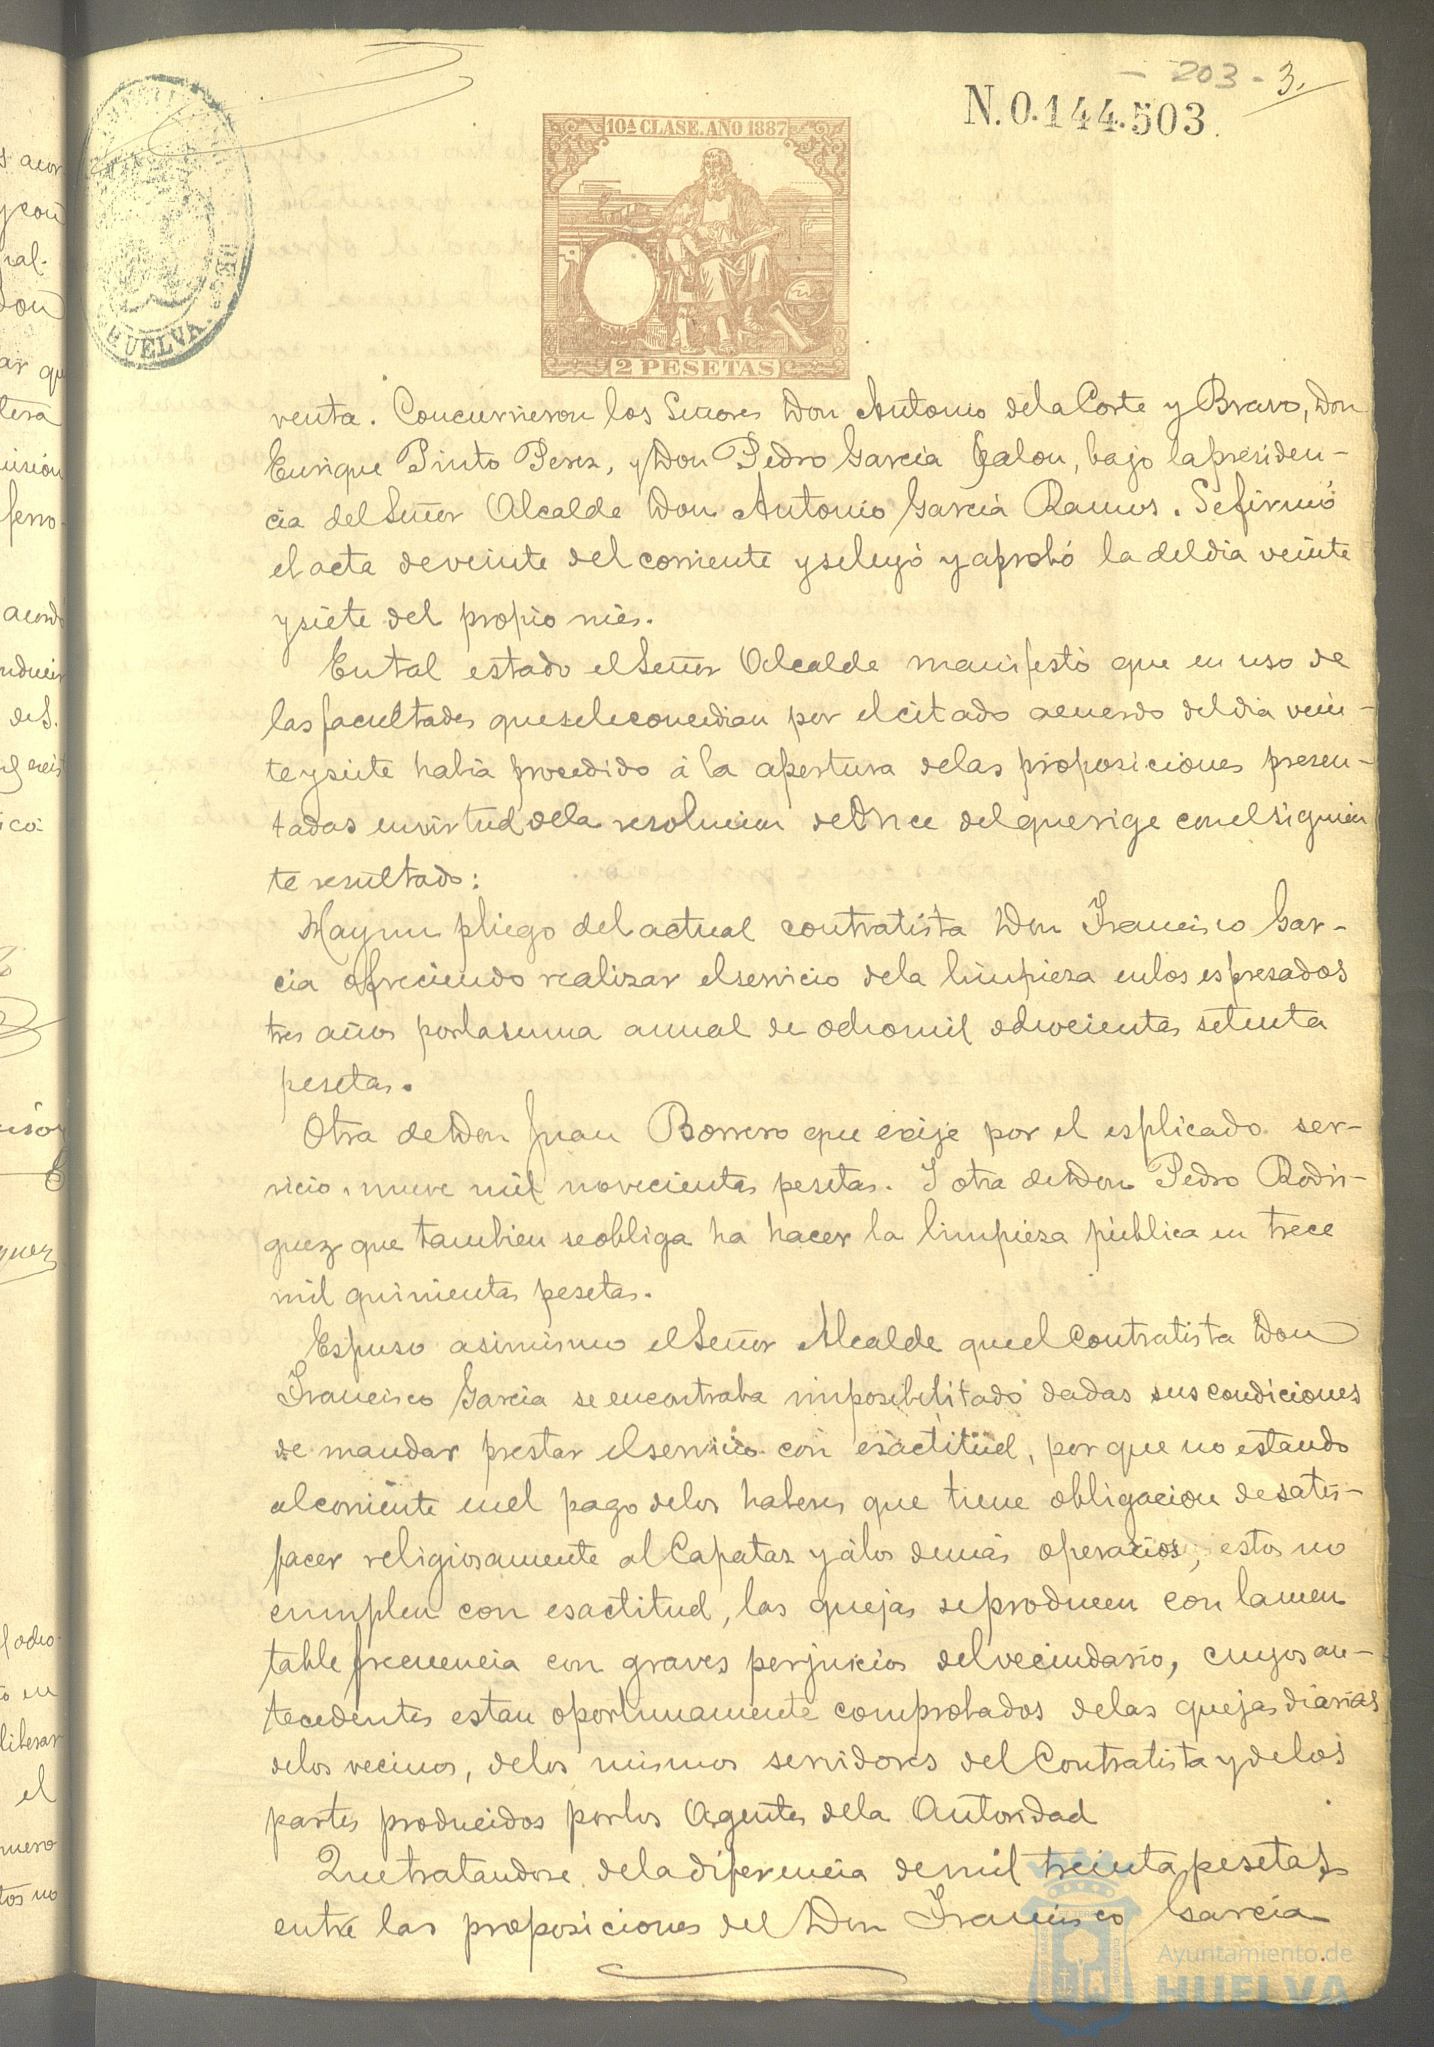 - 203 - 3.
N. 0.144.503.
10A CLASE. AÑO 1887
HUELVA
2 PESETAS
venta. Concurrieron los Señores Don Antonio de la Corte y Bravo, Don
Enrique Pinto Perez, y Don Pedro Garcia Jalon, bajo la presiden-
cia del Señor Alcalde Don Antonio Garcia Ramos. Se firmó
el acta de veinte del corriente y se leyó y aprobó la del dia veinte
y siete del propio mes.
En tal estado el Señor Alcalde manifestó que en uso de
las facultades que se le concedian por el citado acuerdo del dia vein-
te y siete habia procedido á la apertura de las proposiciones presen-
tadas en virtud de la resolucion de Once del que rige con el siguien
te resultado:
Hay un pliego del actual contratista Don Francisco Gar-
cia ofreciendo realizar el servicio de la limpieza en los espresados
tres años por la suma anual de ocho mil ochocientas setenta
pesetas.
Otra de Don Juan Borrero que exije por el esplicado ser-
vicio, nueve mil novecientas pesetas. Y otra de Don Pedro Rodri-
guez que tambien se obliga ha hacer la limpieza pública en trece
mil quinientas pesetas.
Espuso asimismo el Señor Alcalde que el Contratista Don
Francisco Garcia se encontraba imposibilitado dadas sus condiciones
de mandar prestar el servicio con esactitud, por que no estando
al corriente en el pago de los haberes que tiene obligacion de satis-
facer religiosamente al Capataz y á los demás operarios, estos no
cumplen con esactitud, las quejas se producen con lamen
table frecuencia con graves perjuicios del vecindario, cuyos an-
tecedentes estan oportunamente comprobados de las quejas diarias
de los vecinos, de los mismos servidores del Contratista y de los
partes producidos por los Agentes de la Autoridad
Que tratandose de la diferencia de mil treinta pesetas
entre las proposiciones del Don Francisco Garcia
Ayuntamiento de
HUELVA